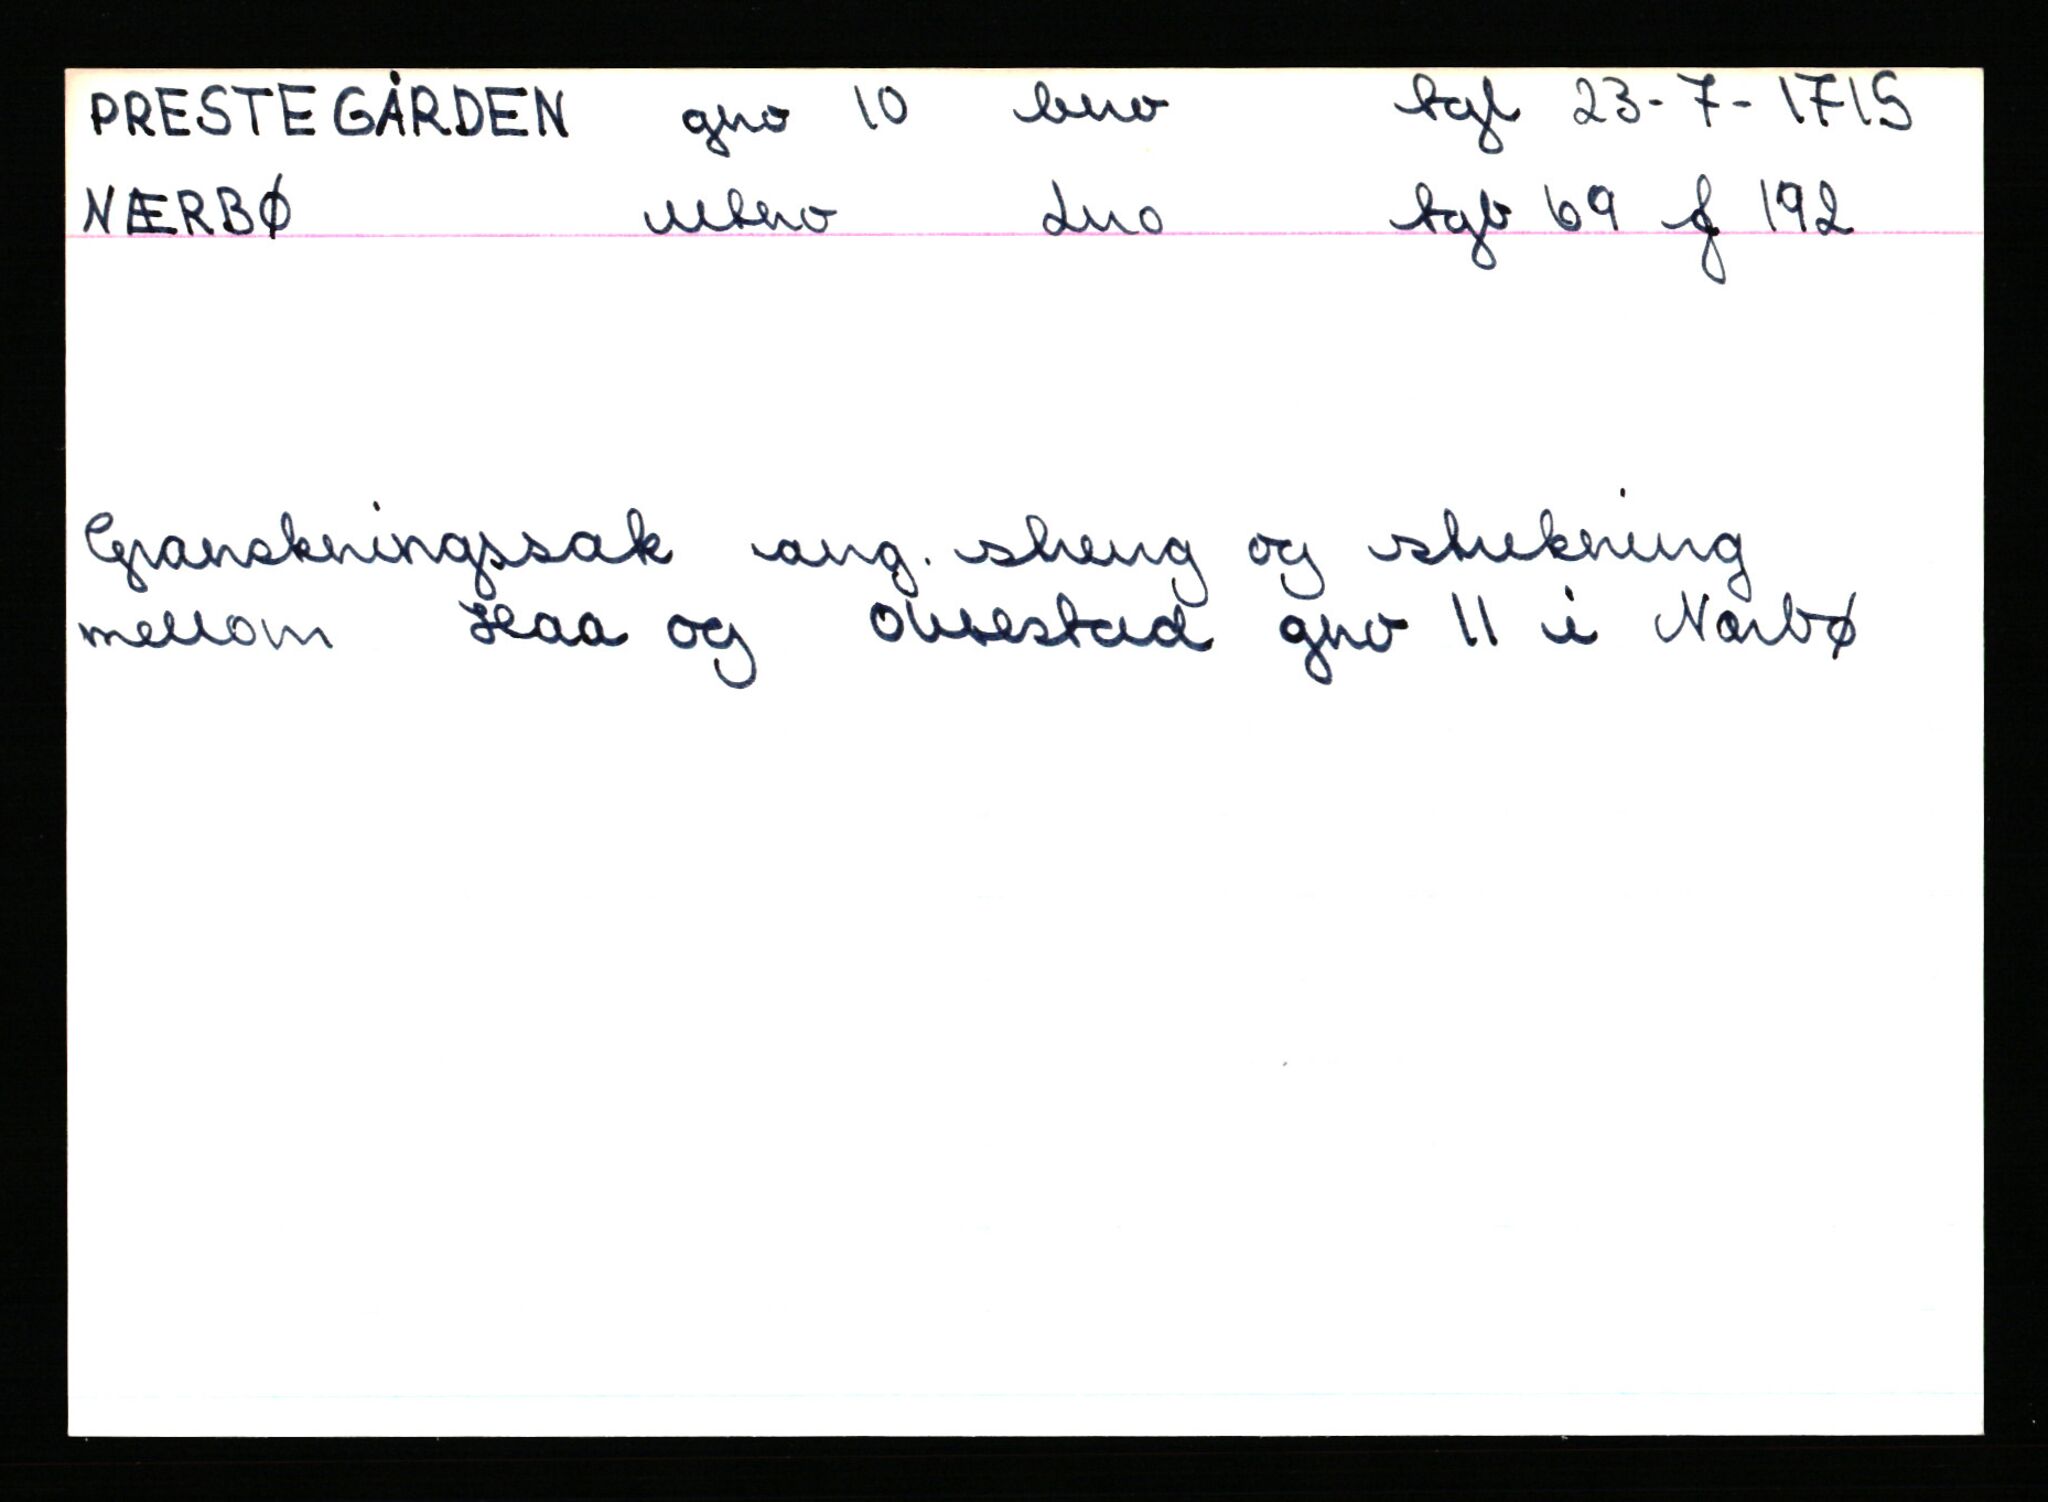 PRESTEGÅRDEN gno 10 bno tgl 23-7-1715
NÆRBØ utno lno tgb 69 f 192
Granskningssak ang. streng og strekning
mellom Haa og Obrestad gno 11 i Nærbø